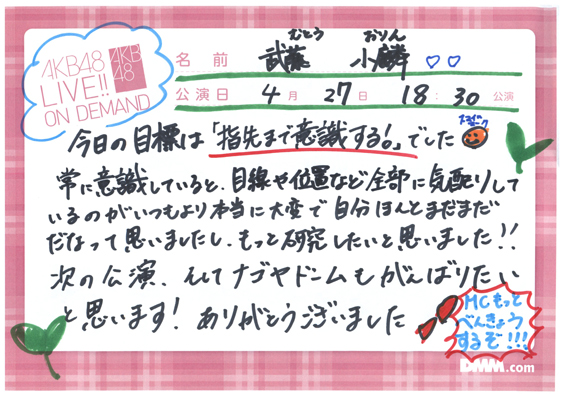 AKB48
LIVE!!
ON DEMAND
AKB
48
むとう おりん
名前 武藤 小麟 ♡♡
公演日 4月 27日 18:30 公演
今日の目標は「指先まで意識する!。」でした
常に意識していると、目線や位置など全部に気配りして
いるのがいつもより本当に大変で自分ほんとまだまだ
だなって思いましたし、もっと研究したいと思いました!!
次の公演、そしてナゴヤドームもがんばりたい
と思います! ありがとうございました
MCもっと
べんきょう
するぞ!!!
DMM.com